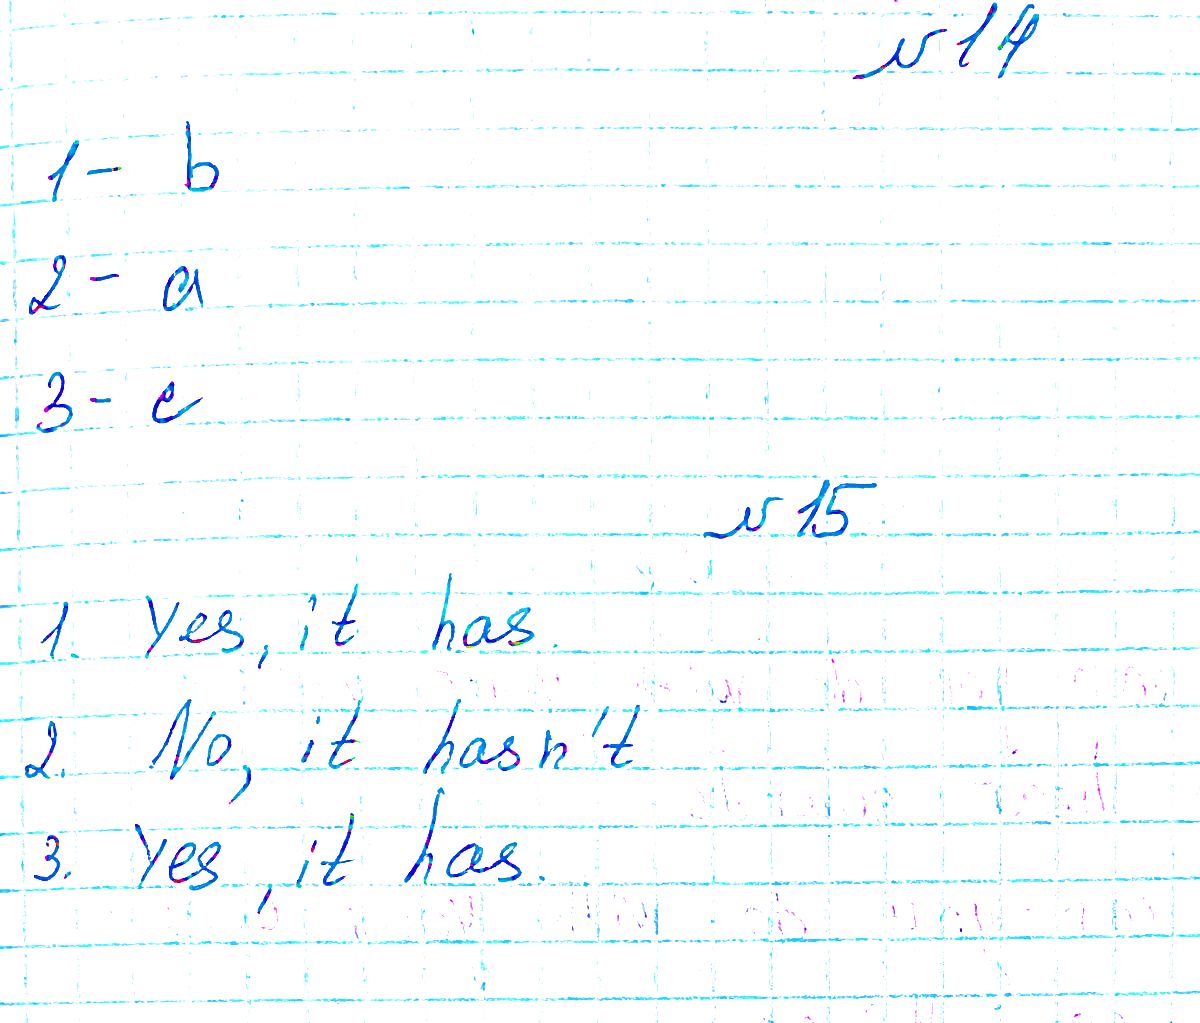 №14
1- b
2- a
3- c
№15
1. Yes, it has.
2. No, it hasn't
3. Yes, it has.